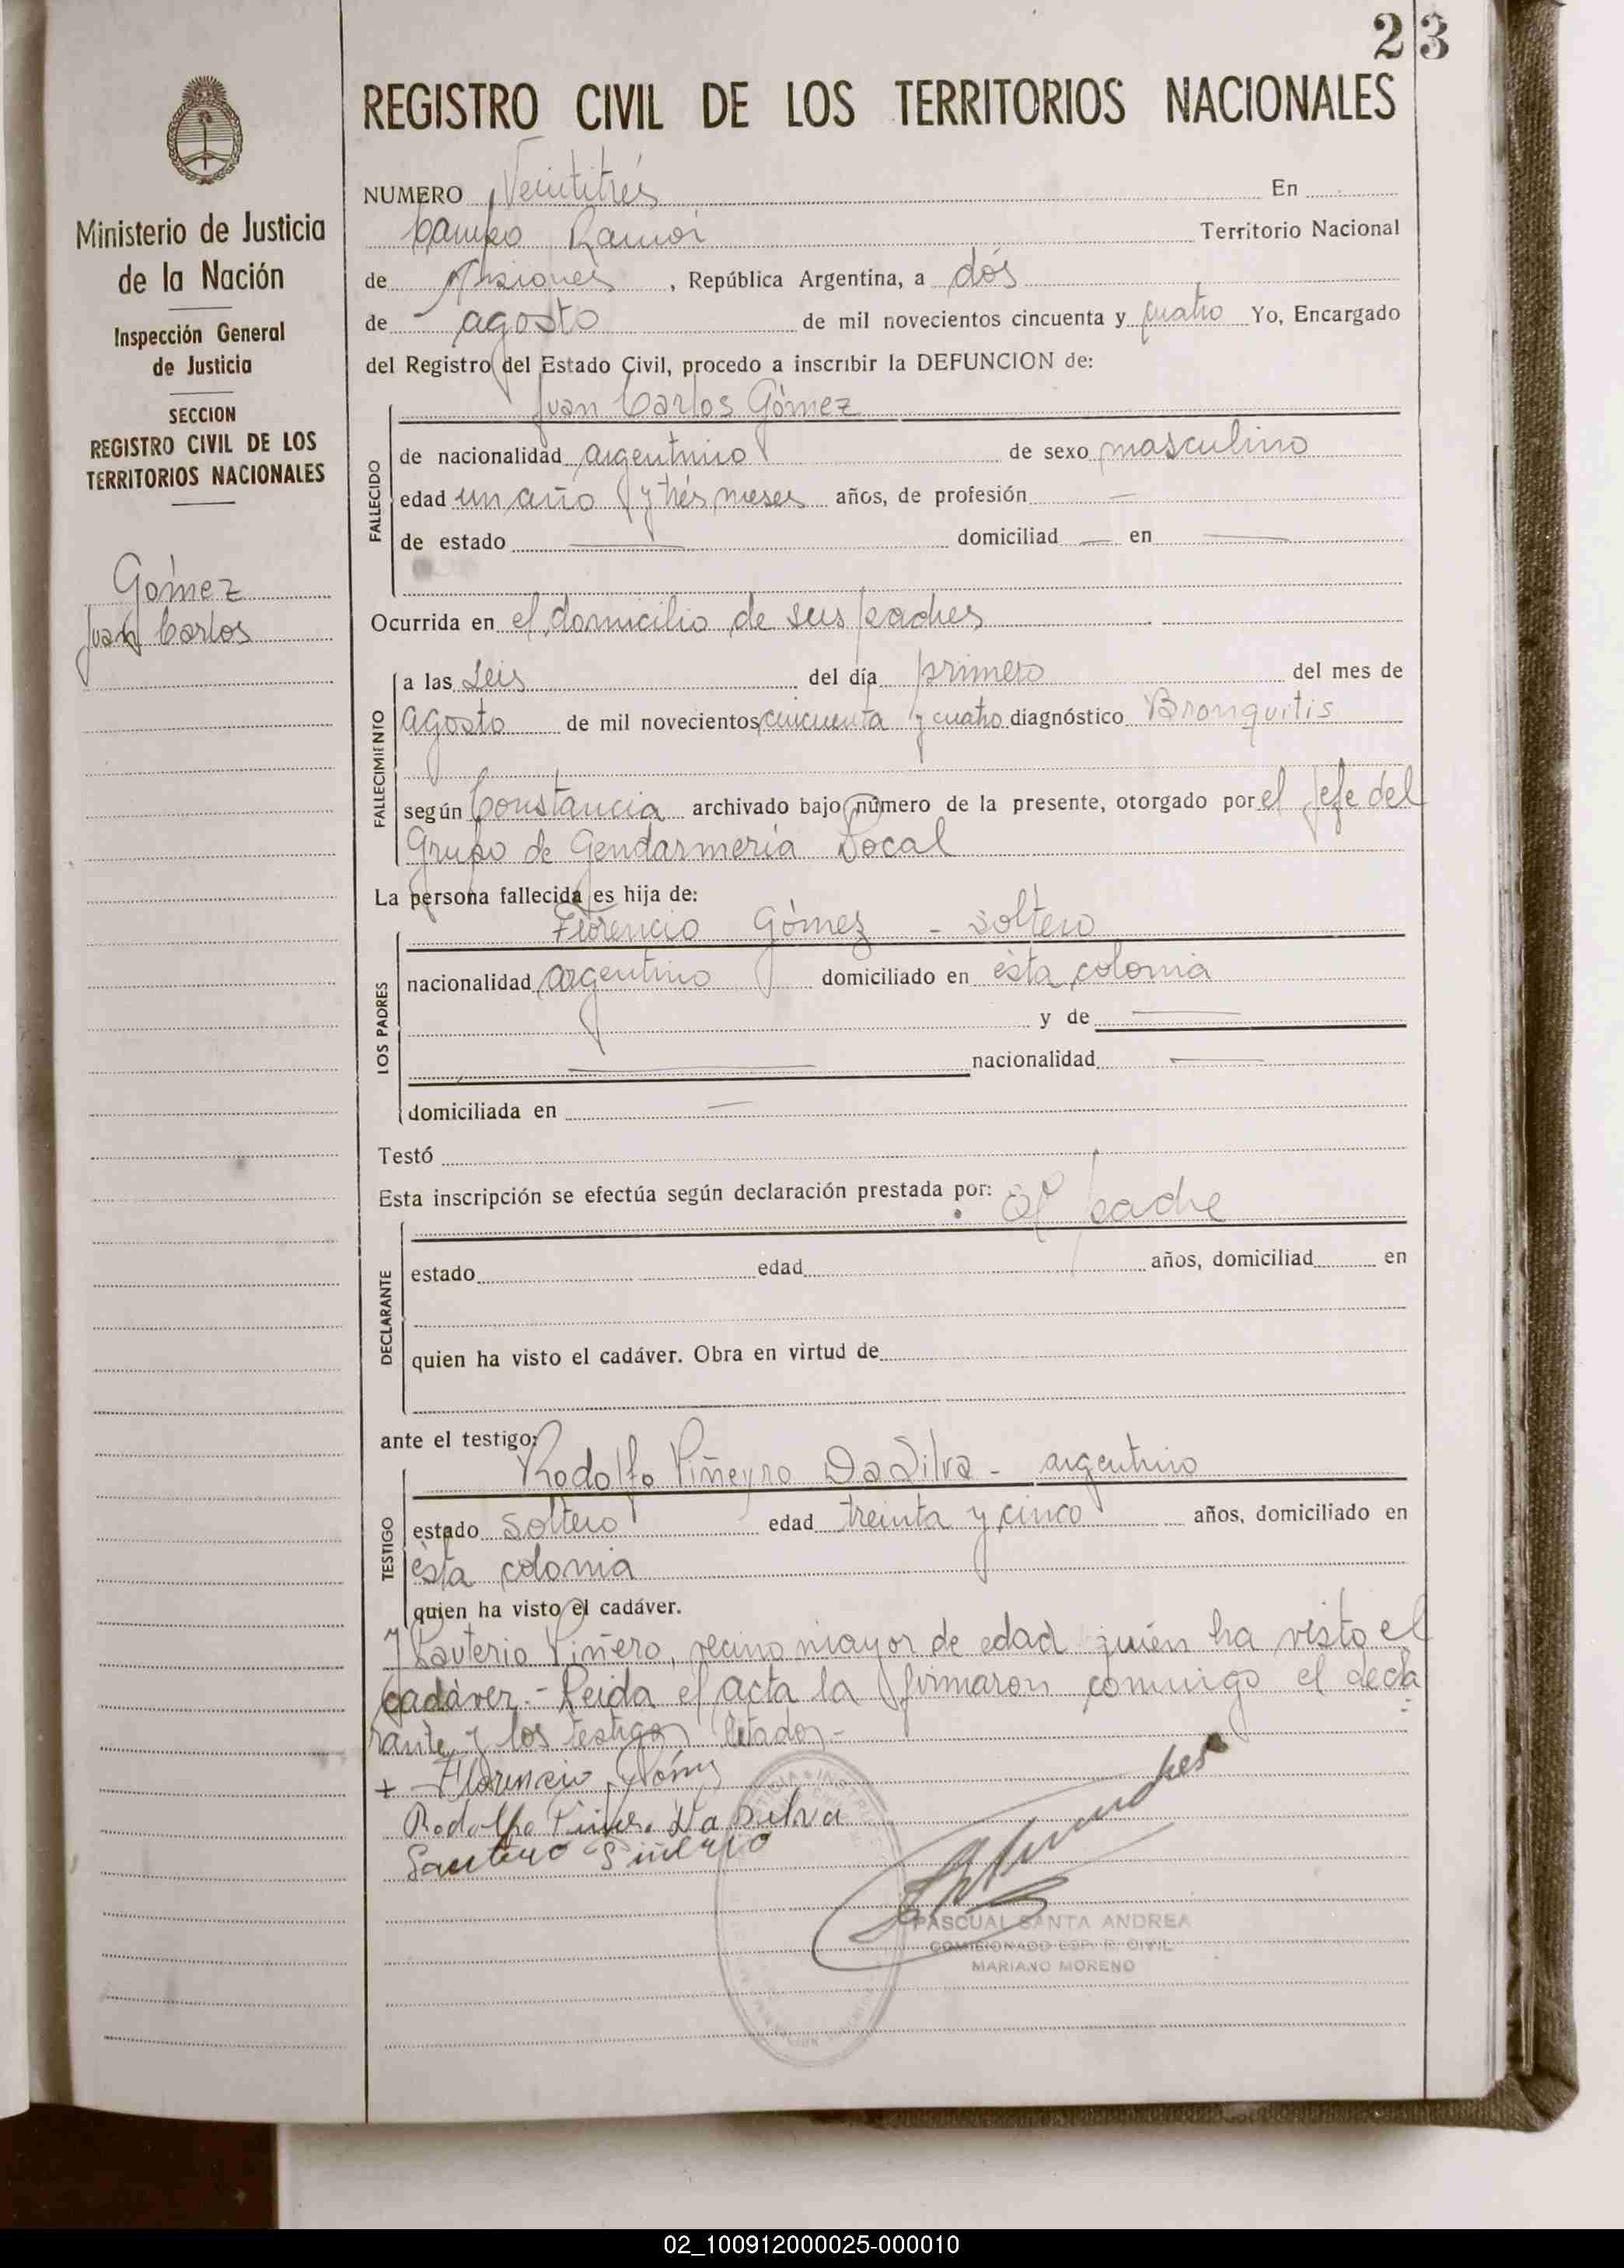 23
REGISTRO CIVIL DE LOS TERRITORIOS NACIONALES
Ministerio de Justicia
de la Nación
Inspección General
de Justicia
SECCION
REGISTRO CIVIL DE LOS
TERRITORIOS NACIONALES
Gómez
Juan Carlos
NUMERO Veintitrés En
Campo Ramón Territorio Nacional
de Misiones, República Argentina, a dós
de agosto de mil novecientos cincuenta y cuatro Yo, Encargado
del Registro del Estado Civil, procedo a inscribir la DEFUNCION de:
Juan Carlos Gómez
FALLECIDO
de nacionalidad argentino de sexo masculino
edad un año y trés meses años, de profesión —
de estado — domiciliad — en —
Ocurrida en el domicilio de sus padres
FALLECIMIENTO
a las seis del día primero del mes de
agosto de mil novecientos cincuenta y cuatro diagnóstico Bronquitis
según Constancia archivado bajo número de la presente, otorgado por el Jefe del
Grupo de Gendarmería Local
La persona fallecida es hija de:
Florencio Gómez - soltero
LOS PADRES
nacionalidad argentino domiciliado en ésta colonia
y de —
— nacionalidad —
domiciliada en —
Testó
Esta inscripción se efectúa según declaración prestada por: El padre
DECLARANTE
estado edad años, domiciliad en
quien ha visto el cadáver. Obra en virtud de
ante el testigo:
Rodolfo Piñeyro Da Silva - argentino
TESTIGO
estado soltero edad treinta y cinco años, domiciliado en
ésta colonia
quien ha visto el cadáver.
y Lauterio Piñero, vecino mayor de edad quién ha visto el
cadáver.- Leida el acta la firmaron conmigo el decla
rante y los testigos citados.-
+ Florencio Gómez
Rodolfo Da Silva
PASCUAL SANTA ANDREA
COMISIONADO ESP. R. CIVIL
MARIANO MORENO
02_100912000025-000010